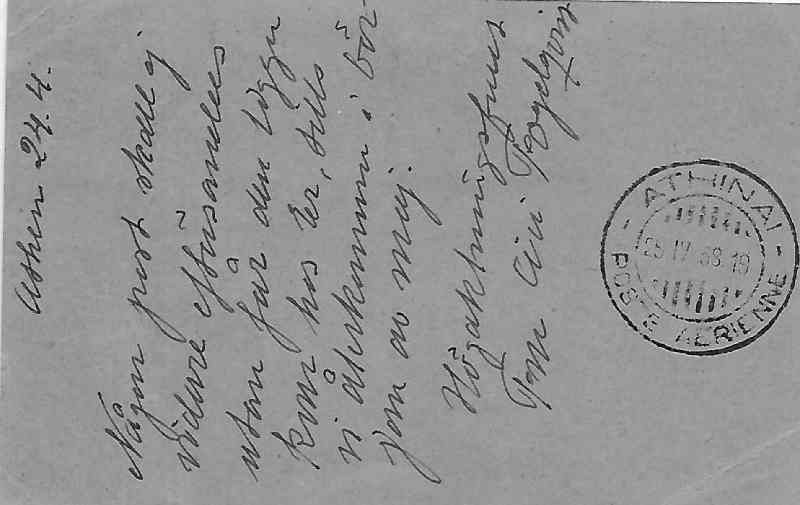 Athen 24.4.
Någon post skall ej
vidare eftersändas
utan får den ligga
kvar hos Er, tills
vi återkomma i bör-
jan av maj.
Högaktningsfullt
ATHINAI
25 IV 68.18
POSTE AERIENNE